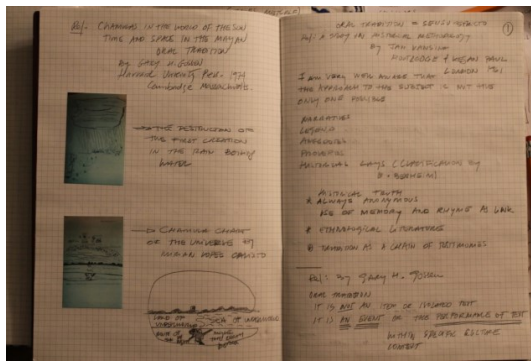 Ref. CHAMULAS IN THE WORLD OF THE SUN
TIME AND SPACE IN THE MAYAN
ORAL TRADITION
by GARY H. GOSSEN
Harvard University Press. 1974
Cambridge Massachusetts
THE DESTRUCTION OF
THE FIRST CREATION
IN THE RAIN BOILING
WATER
CHAMULA
OF THE UNIVERSE by
MARIAN LOPEZ CALIXTO
LAND OF
UNDERWORLD
①
ORAL TRADITION =
Ref. A STUDY IN HISTORICAL METHODOLOGY
by JAN VANSINA
ROUTLEDGE & KEGAN PAUL
LONDON 1961
I AM VERY WELL AWARE THAT
THE APPROACH TO THE SUBJECT IS NOT THE
ONLY ONE POSSIBLE
NARRATIVES
LEGEND
ANECDOTES
PROVERBS
HISTORICAL LAYS (CLASSIFICATION by
E. BERNHEIM)
HISTORICAL TRUTH
ALWAYS ANONYMOUS
USE OF MEMORY AND RHYME AS LINK
ETHNOLOGICAL LITERATURE
TRADITION AS A CHAIN OF TESTIMONIES
Ref: By GARY H. GOSSEN
ORAL TRADITION
IT IS NOT AN ITEM OR ISOLATED TEXT
IT IS AN EVENT OR THE PERFORMANCE OF TEXT
WITHIN SPECIFIC CULTURE
CONTEXT